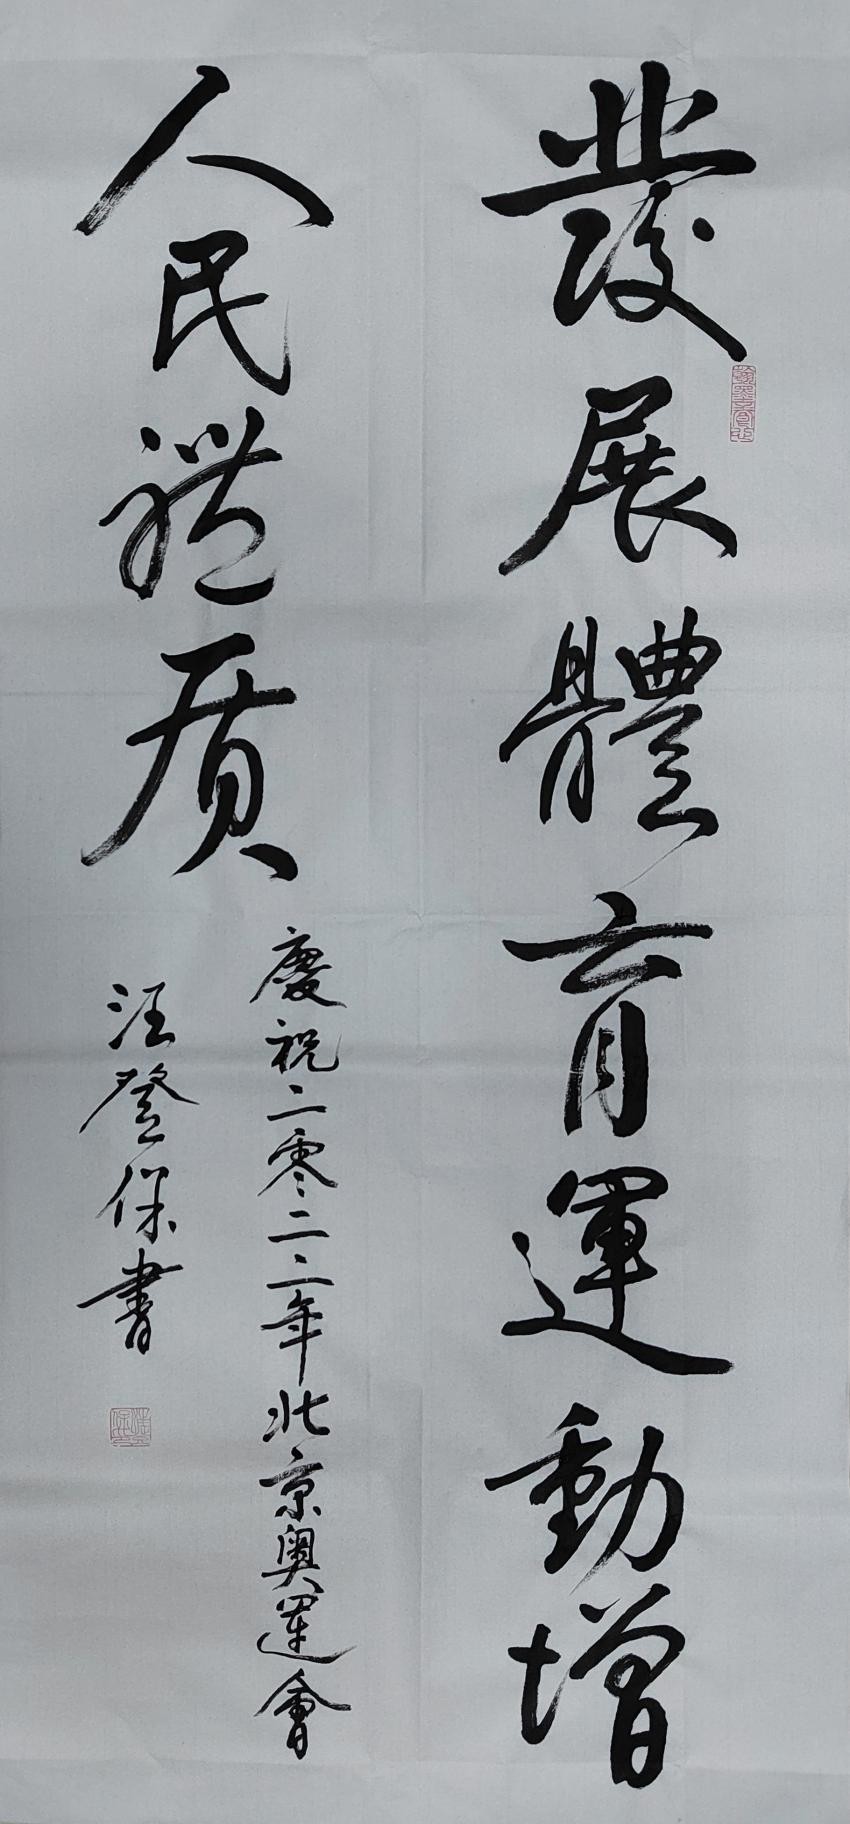 發展體育運動增
人民體质
慶祝二零二二年北京奥運會
汪登保書